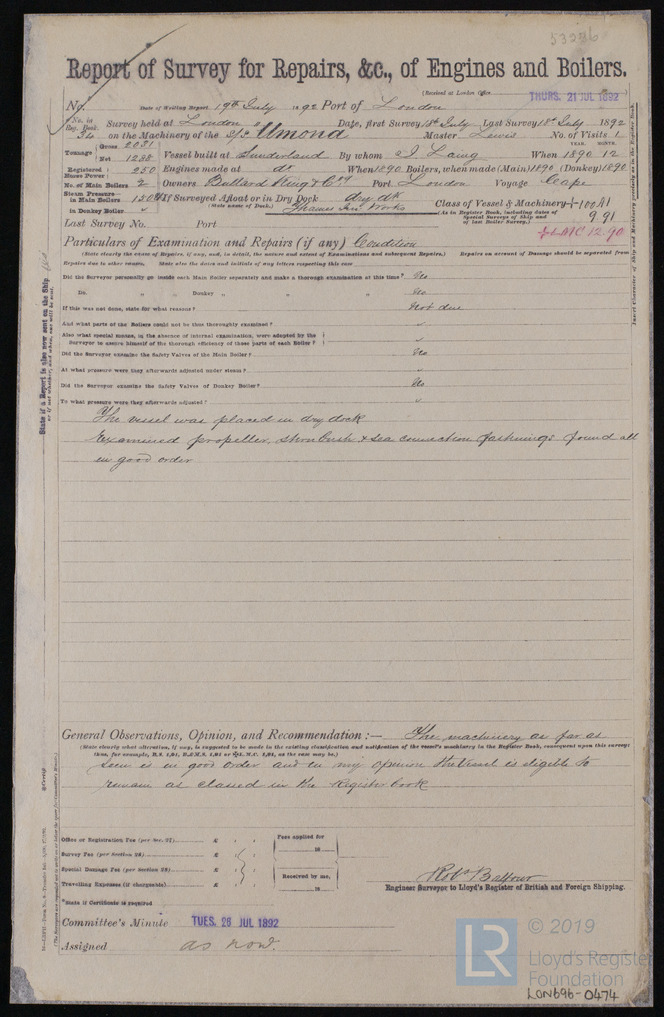 53236
Report of Survey for Repairs, &c., of Engines and Boilers.
(Received at London Office
THURS. 21 JUL 1892
No. Date of Writing Report 19th July 1892 Port of London
No. in Reg. Book. Survey held at London Date, first Survey 18th July Last Survey 18th July 1892
34 on the Machinery of the S/S Umona Master Lewis No. of Visits 1
Tonnage Gross 2031 Net 1288 Vessel built at Sunderland By whom J. Laing When YEAR. 1890 MONTH. 12
Registered Horse Power 250 Engines made at do When 1890 Boilers, when made (Main) 1890 (Donkey) 1890
No. of Main Boilers 2 Owners Bullard King & Coy Port London Voyage Cape
Steam Pressure in Main Boilers 150 If Surveyed Afloat or in Dry Dock dry dk Class of Vessel & Machinery 100A1
in Donkey Boiler (State name of Dock.) Thames Iron Works (As in Register Book, including dates of Special Surveys of Ship and of last Boiler Survey.) 9.91
Last Survey No. Port
12.90
Particulars of Examination and Repairs (if any) Condition
(State clearly the cause of Repairs, if any, and, in detail, the nature and extent of Examinations and subsequent Repairs.) Repairs on account of Damage should be separated from
Repairs due to other causes. State also the dates and initials of any letters respecting this case
Did the Surveyor personally go inside each Main Boiler separately and make a thorough examination at this time? No
Do. „ „ Donkey „ „ „ „ No
If this was not done, state for what reason? Not due
And what parts of the Boilers could not be thus thoroughly examined? „
Also what special means, in the absence of internal examination, were adopted by the
Surveyor to assure himself of the thorough efficiency of those parts of each Boiler? „
Did the Surveyor examine the Safety Valves of the Main Boiler? No
At what pressure were they afterwards adjusted under steam? „
Did the Surveyor examine the Safety Valves of Donkey Boiler? No
To what pressure were they afterwards adjusted? „
The vessel was placed in dry dock
Examined propeller, stern bush & sea connection fastenings found all
in good order
General Observations, Opinion, and Recommendation :— The machinery as far as
(State clearly what alteration, if any, is suggested to be made in the existing classification and notification of the vessel's machinery in the Register Book, consequent upon this survey:
seen is in good order and in my opinion the vessel is eligible to
remain as classed in the Register book
Office or Registration Fee (per Sec. 27) £ Fees applied for
Survey Fee (per Section 28) £ 18
Special Damage Fee (per Section 28) £ Received by me,
Travelling Expenses (if chargeable) £ 18
Robt Balfour
Engineer Surveyor to Lloyd's Register of British and Foreign Shipping.
*State if Certificate is required
Committee's Minute TUES. 26 JUL 1892
Assigned as now.
State if a Report is also now sent on the Ship
LR
© 2019
Lloyd's Register
Foundation
LON696-0474